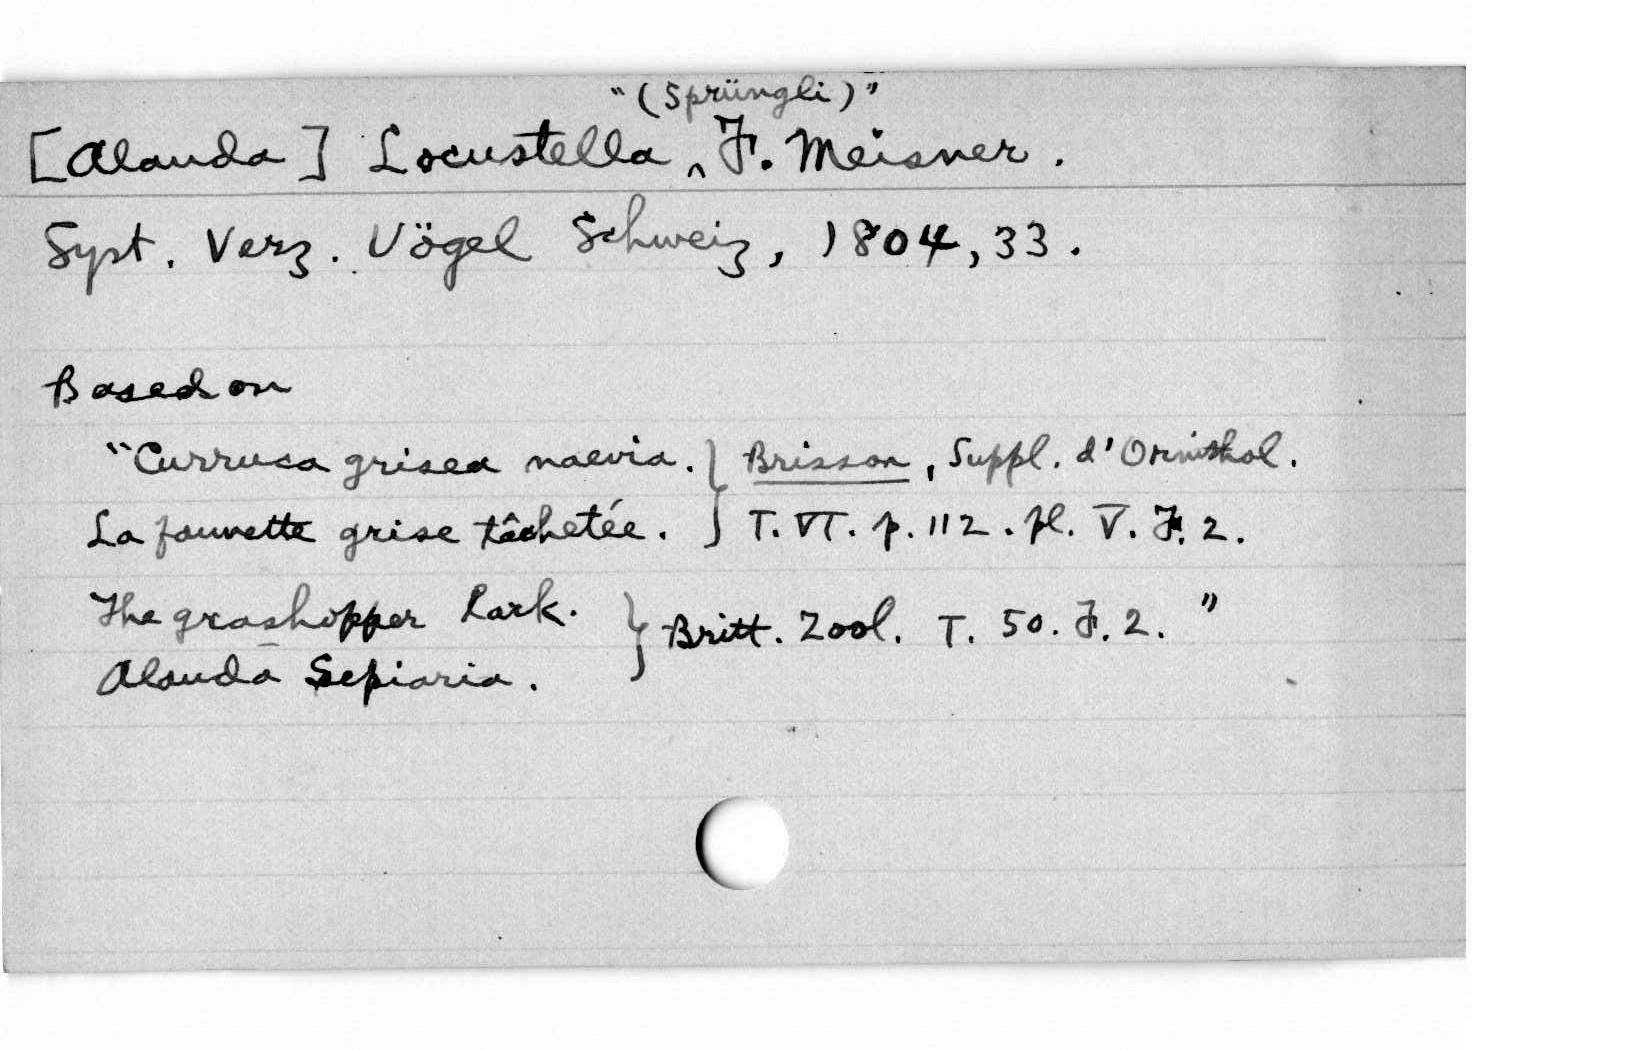 "(Sprüngli)"
[Alauda] Locustella ‸ F. Meisner.
Syst. Verz. Vögel Schweiz, 1804, 33.
Based on
"Curruca grisea naevia. } Brisson, Suppl. d'Ornithol.
La fauvette grise tâchetée. } T. VI. p. 112. pl. V. F. 2.
The grashopper Lark. } Britt. Zool. T. 50. F. 2."
Alauda Sepiaria.